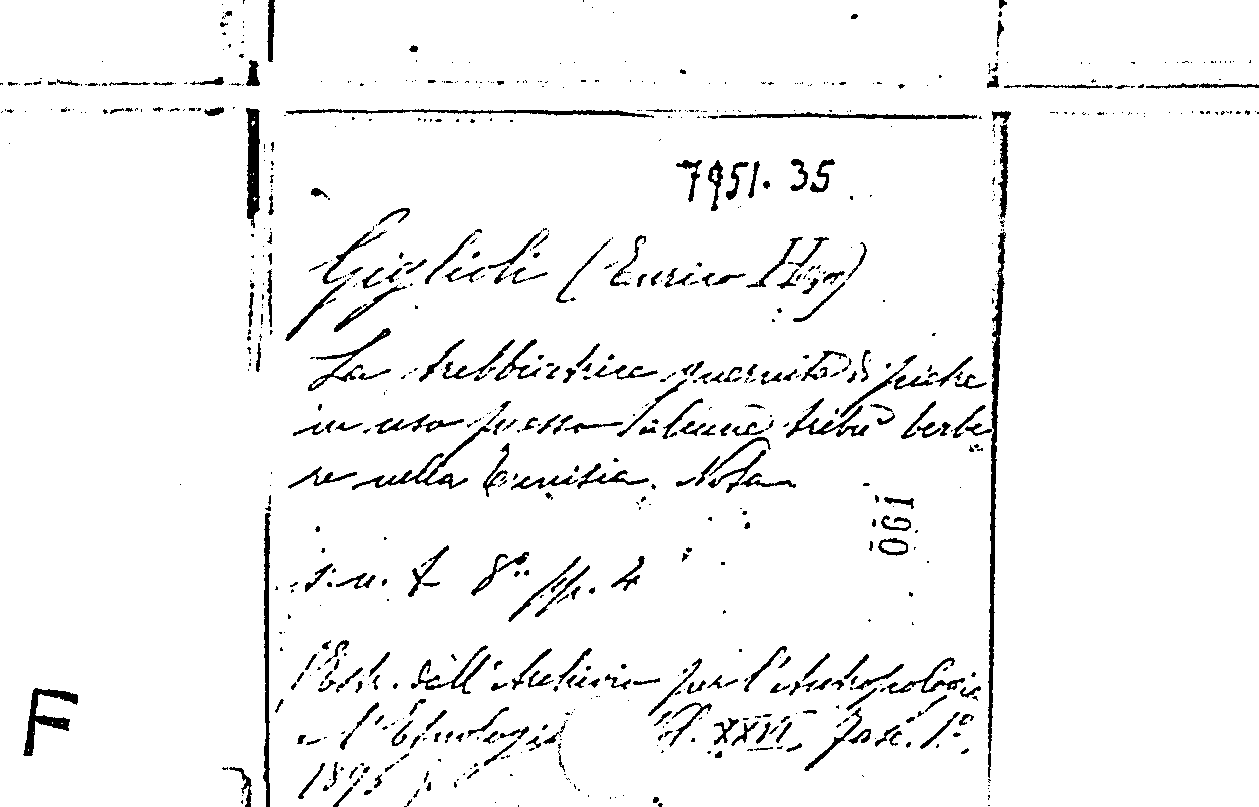 7951. 35
Giglioli (Enrico H.)
La trebbiatrice guernita di pietre
in uso presso alcune tribù berbe
re nella Tunisia. Nota
061
s. n. t. 8° pp. 4
(Estr. dall'Archivio per l'Antropologia
e l'Etnologia Vol. XXVI, Fasc. 1°.
F